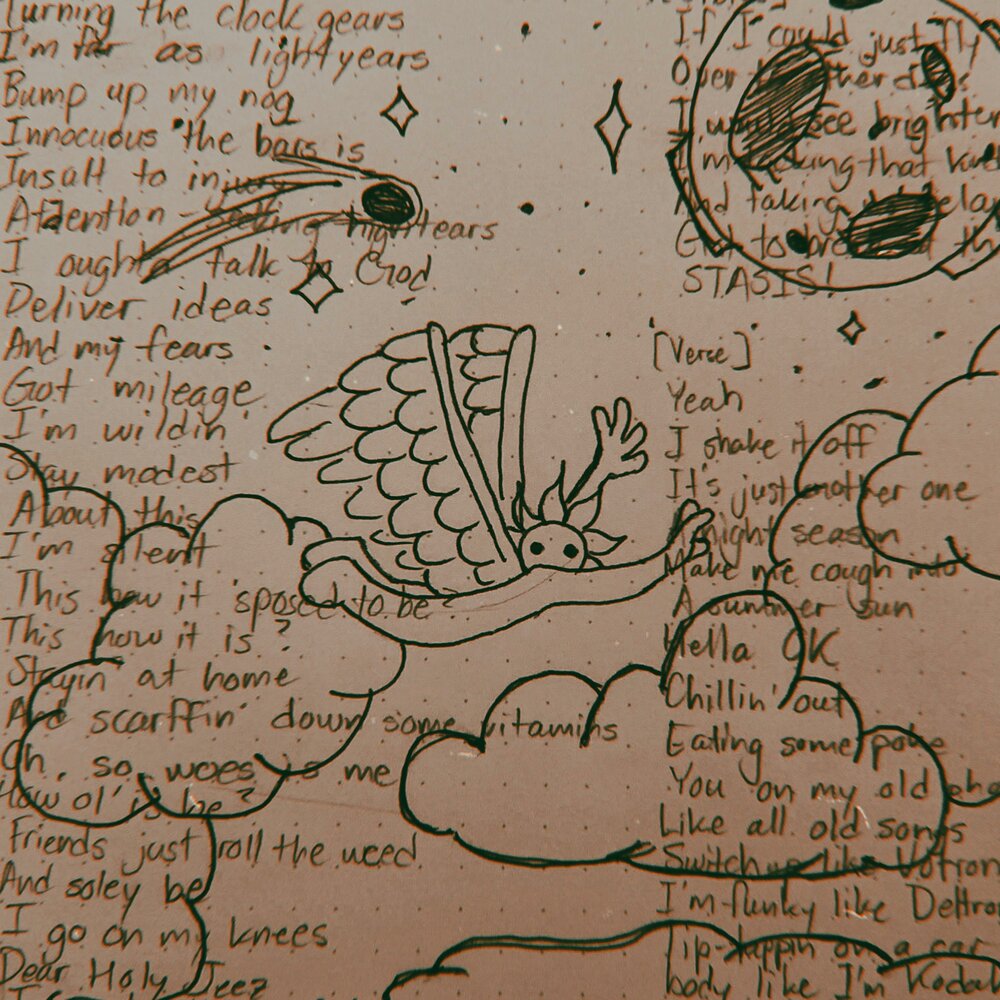 Turning the clock gears
I'm far as lightyears
Bump up my nog
Innocuous the bars is
Insalt to injury
Attention - getting hightears
I oughta talk to God
Deliver ideas
And my fears
Got mileage
I'm wildin'
Stay modest
About this
I'm silent
This how it 'sposed to be?
This how it is?
Stayin' at home
And scarffin' down some vitamins
Oh, so woes is me
How ol' is he?
Friends just roll the weed
And soley be
I go on my knees
Dear Holy Jeez
If I could just fly
Over
I would see brighter
I'm that
And taking
Got to
STASIS!
[Verse]
Yeah
I shake it off
It's just another one
A night season
Make me cough into
A summer sun
Hella OK
Chillin' out
Eating some
You on my old
Like all old songs
Switch up like Votron
I'm flunky like Deltro
Tip-tappin on a car
body like I'm Kodak